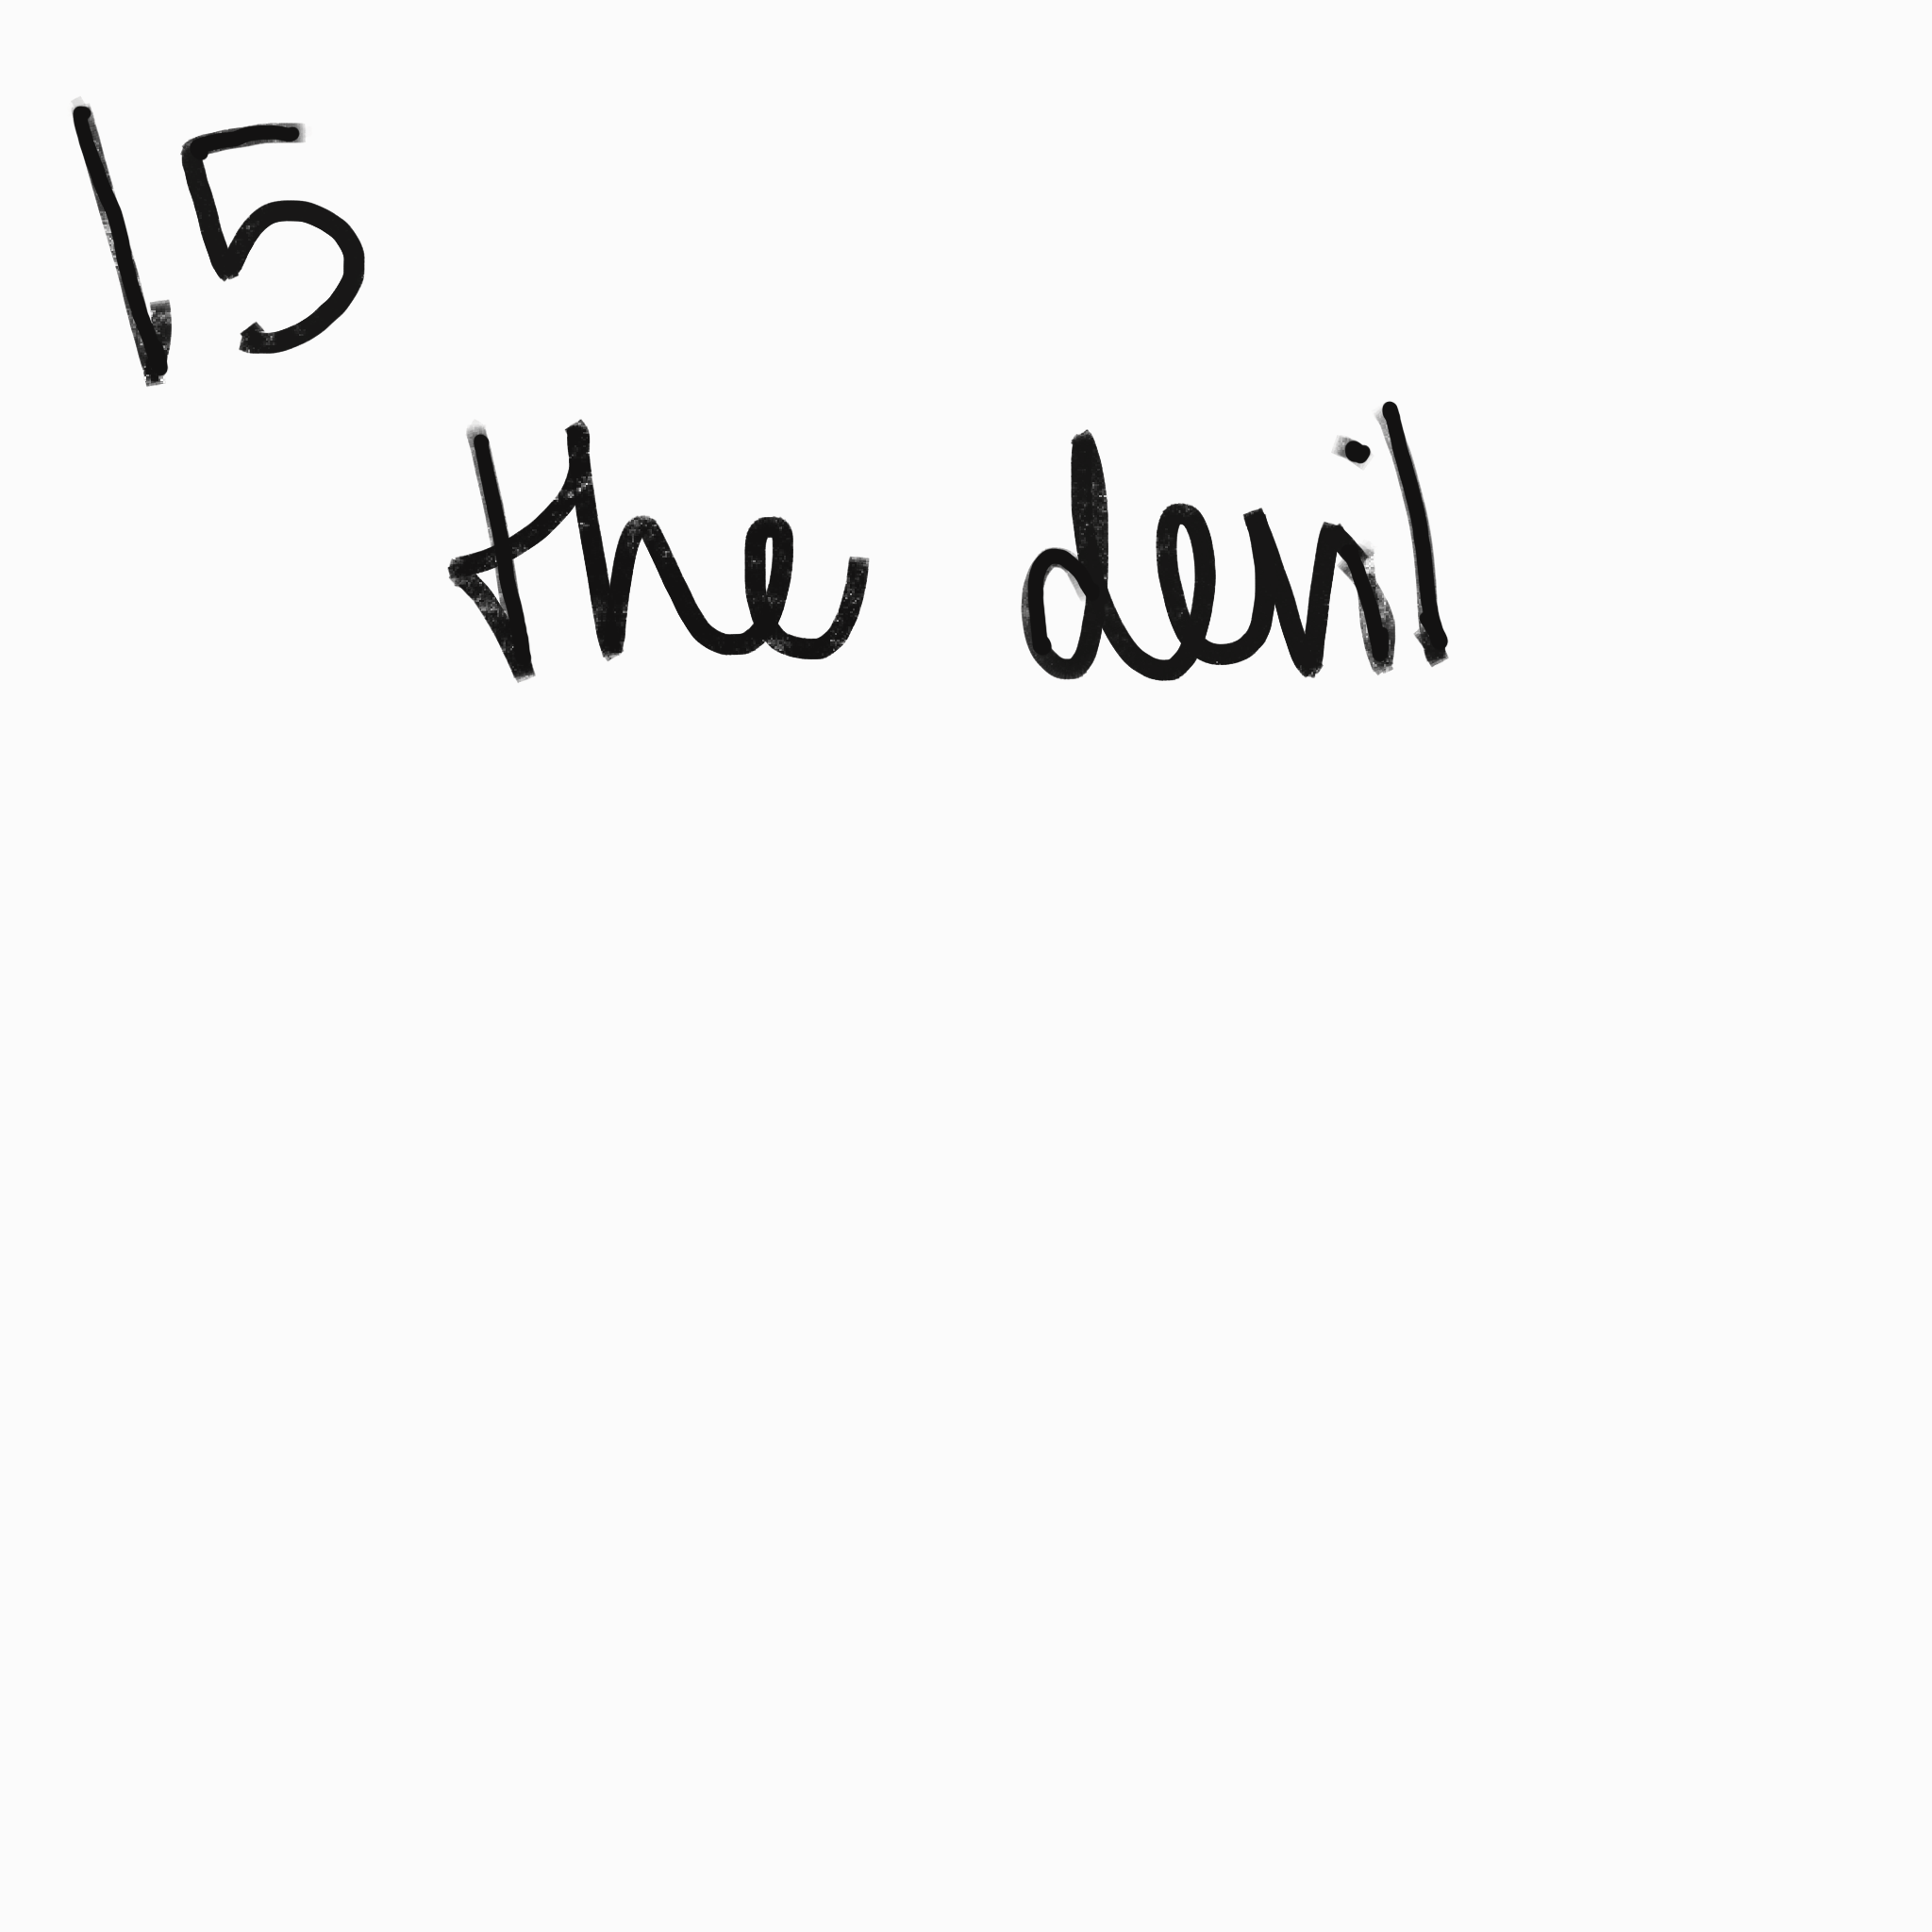 15
the devil